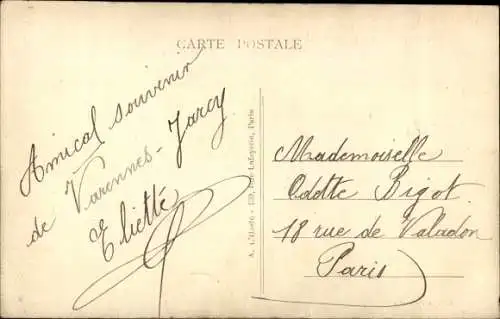 CARTE POSTALE
Amical souvenir
de Varennes-Jarcy
Eliette
Mademoiselle
Odette Bigot
18 rue de Valadon
Paris